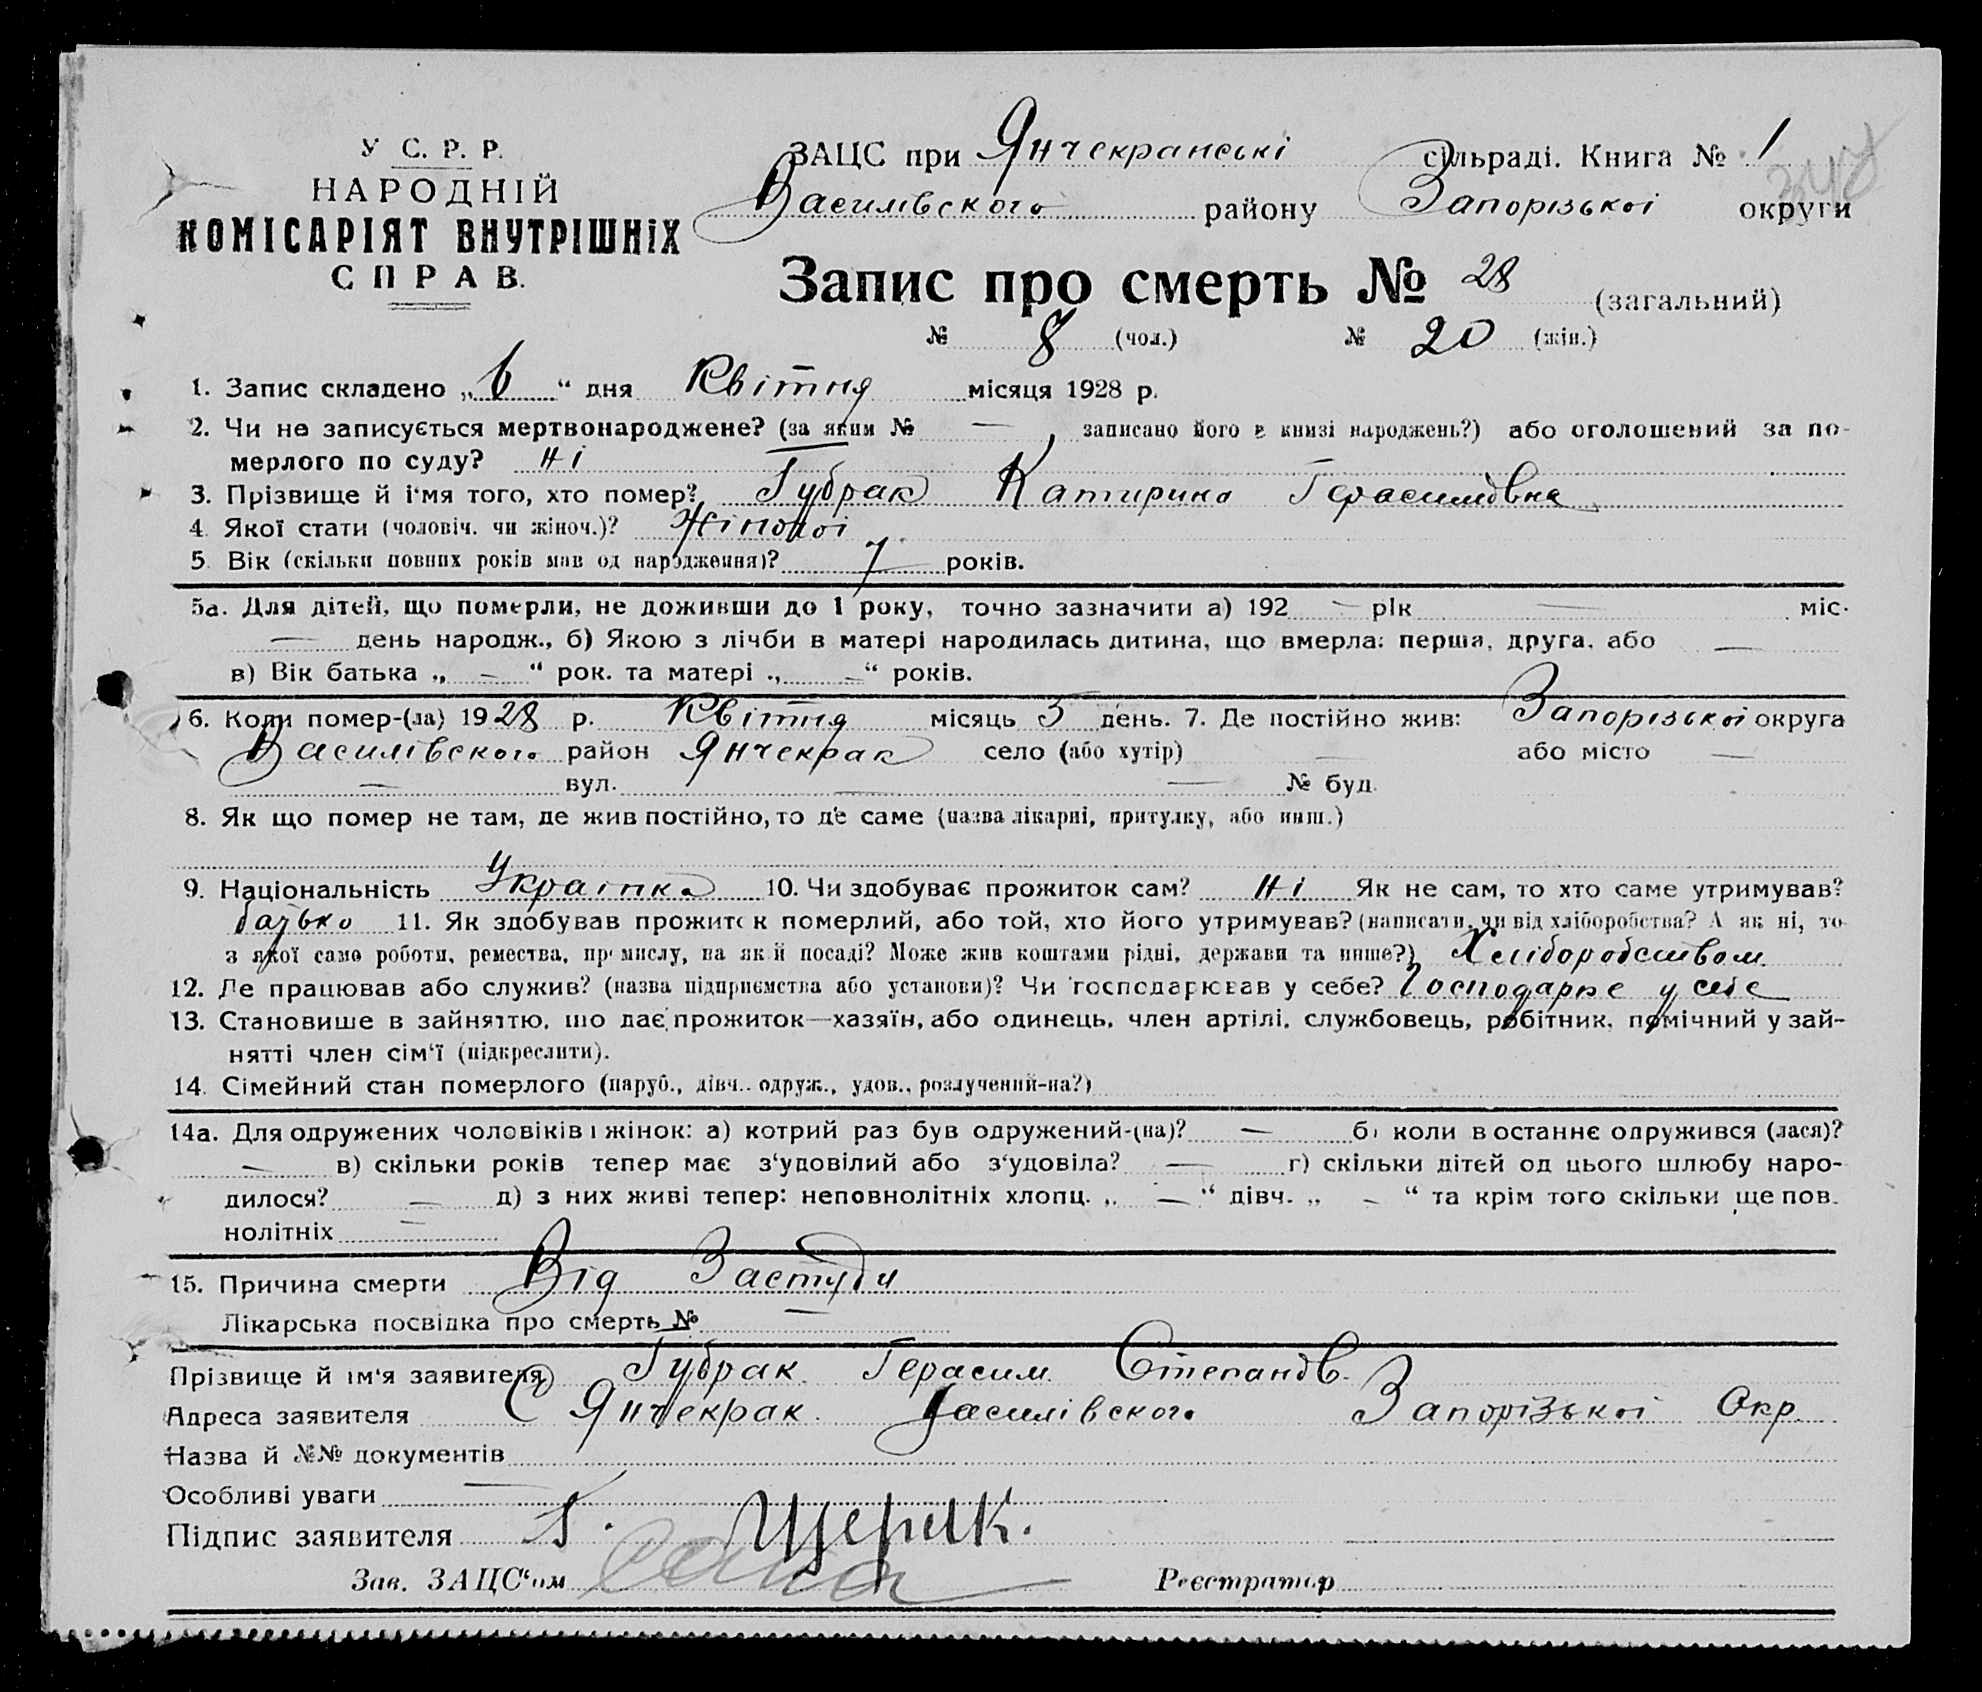 У С. Р. Р.
НАРОДНІЙ
КОМІСАРІЯТ ВНУТРІШНІХ
СПРАВ.
ЗАЦС при Янчекранські сільраді. Книга № 1
Василівского району Запорізькоі округи
Запис про смерть № 28 (загальний)
№ 8 (чол.) № 20 (жін.)
1. Запис складено „6“ дня Квітня місяця 1928 р.
2. Чи не записується мертвонароджене? (за яким № — , записано його в книзі народжень?) або оголошений за по-
мерлого по суду? Ні
3. Прізвище й і'мя того, хто помер? Губрак Катирина Герасимовна
4. Якої стати (чоловіч. чи жіноч.)? Жіночоі
5. Вік (скільки повних років мав од народження)? 7 років.
5а. Для дітей, що померли, не доживши до 1 року, точно зазначити а) 192 — рік — міс.
— день народж., б) Якою з лічби в матері народилась дитина, що вмерла: перша, друга, або —
в) Вік батька „ — “ рок. та матері „ — “ років.
6. Коли помер-(ла) 1928 р. Квітня місяць 5 день. 7. Де постійно жив: Запорізькоі округа
Василівского район Янчекрак село (або хутір) — або місто —
— вул. — — № буд.
8. Як що помер не там, де жив постійно, то де саме (назва лікарні, притулку, або инш.)
9. Національність Українка 10. Чи здобуває прожиток сам? Ні Як не сам, то хто саме утримував?
батько 11. Як здобував прожиток померлий, або той, хто його утримував? (написати, чи від хліборобства? А як ні, то
з якої саме роботи, ремества, промислу, на якій посаді? Може жив коштами рідні, держави та инше?) Хліборобством
12. Де працював або служив? (назва підприємства або установи)? Чи господарював у себе? Господарює у себе
13. Становище в зайняттю, що дає прожиток—хазяїн, або одинець, член артілі, службовець, робітник, помічний у зай-
нятті член сім'ї (підкреслити).
14. Сімейний стан померлого (паруб., дівч., одруж., удов., розлучений-на?)
14а. Для одружених чоловіків і жінок: а) котрий раз був одружений-(на)? — б) коли в останнє одружився (лася)?
— в) скільки років тепер має з'удовілий або з'удовіла? — г) скільки дітей од цього шлюбу наро-
дилося? — д) з них живі тепер: неповнолітніх хлопц. „ — “ дівч. „ — “ та крім того скільки ще пов.
нолітніх —
15. Причина смерти Від Застуди
Лікарська посвідка про смерть № —
Прізвище й ім'я заявителя Губрак Герасим Степанов.
Адреса заявителя С Янчекрак Василівского Запорізькоі Окр.
Назва й №№ документів
Особливі уваги —
Підпис заявителя Г.
Зав. ЗАЦС'ом
Реєстратор